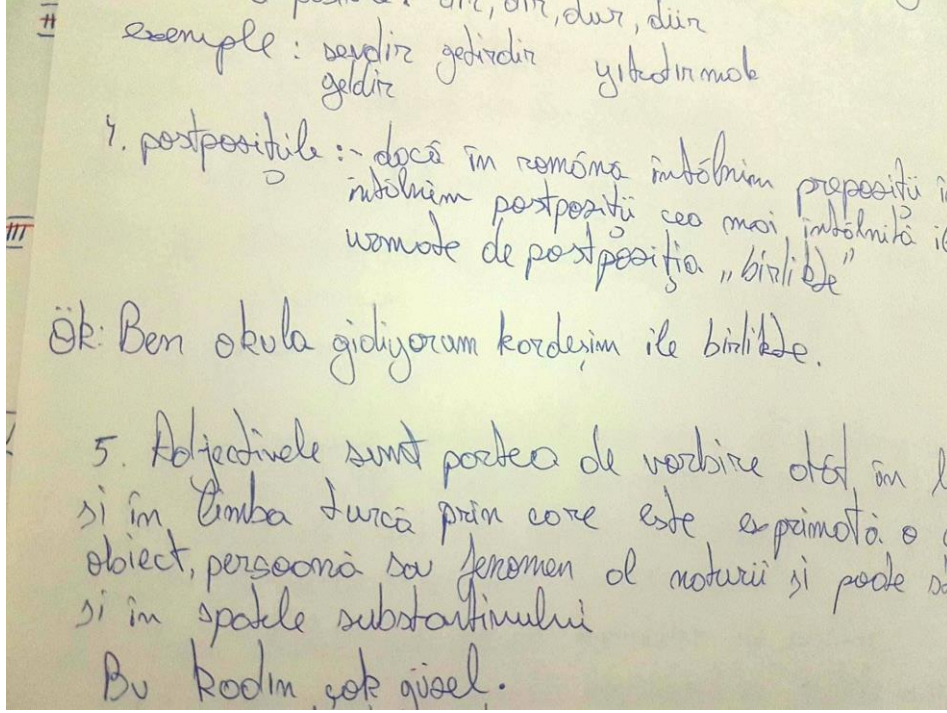 dır, dir, dur, dür
exemple: sevdir getirdir yıkdırmak
geldir
4. postpozițiile :- dacă în româna întâlnim prepoziții
întâlnim postpoziții cea mai întâlnită
urmate de postpoziția „birlikte”
Ök: Ben okula gidiyorum kardeşim ile birlikte.
5. Adjectivele sunt partea de vorbire atât în
și în limba turcă prin care este exprimată o
obiect, persoană sau fenomen al naturii și poate
și în spatele substantivului
Bu kadın çok güsel.